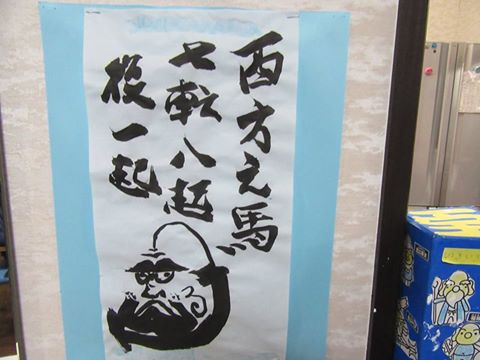 西方之馬
七転八起
從一起